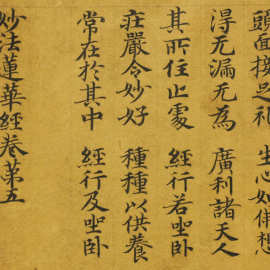 頭面接足礼　生心如佛想
得无漏无為　廣利諸天人
其所住止處　經行若坐卧
莊嚴令妙好　種種以供養
常在於其中　經行及坐卧
妙法蓮華經卷第五